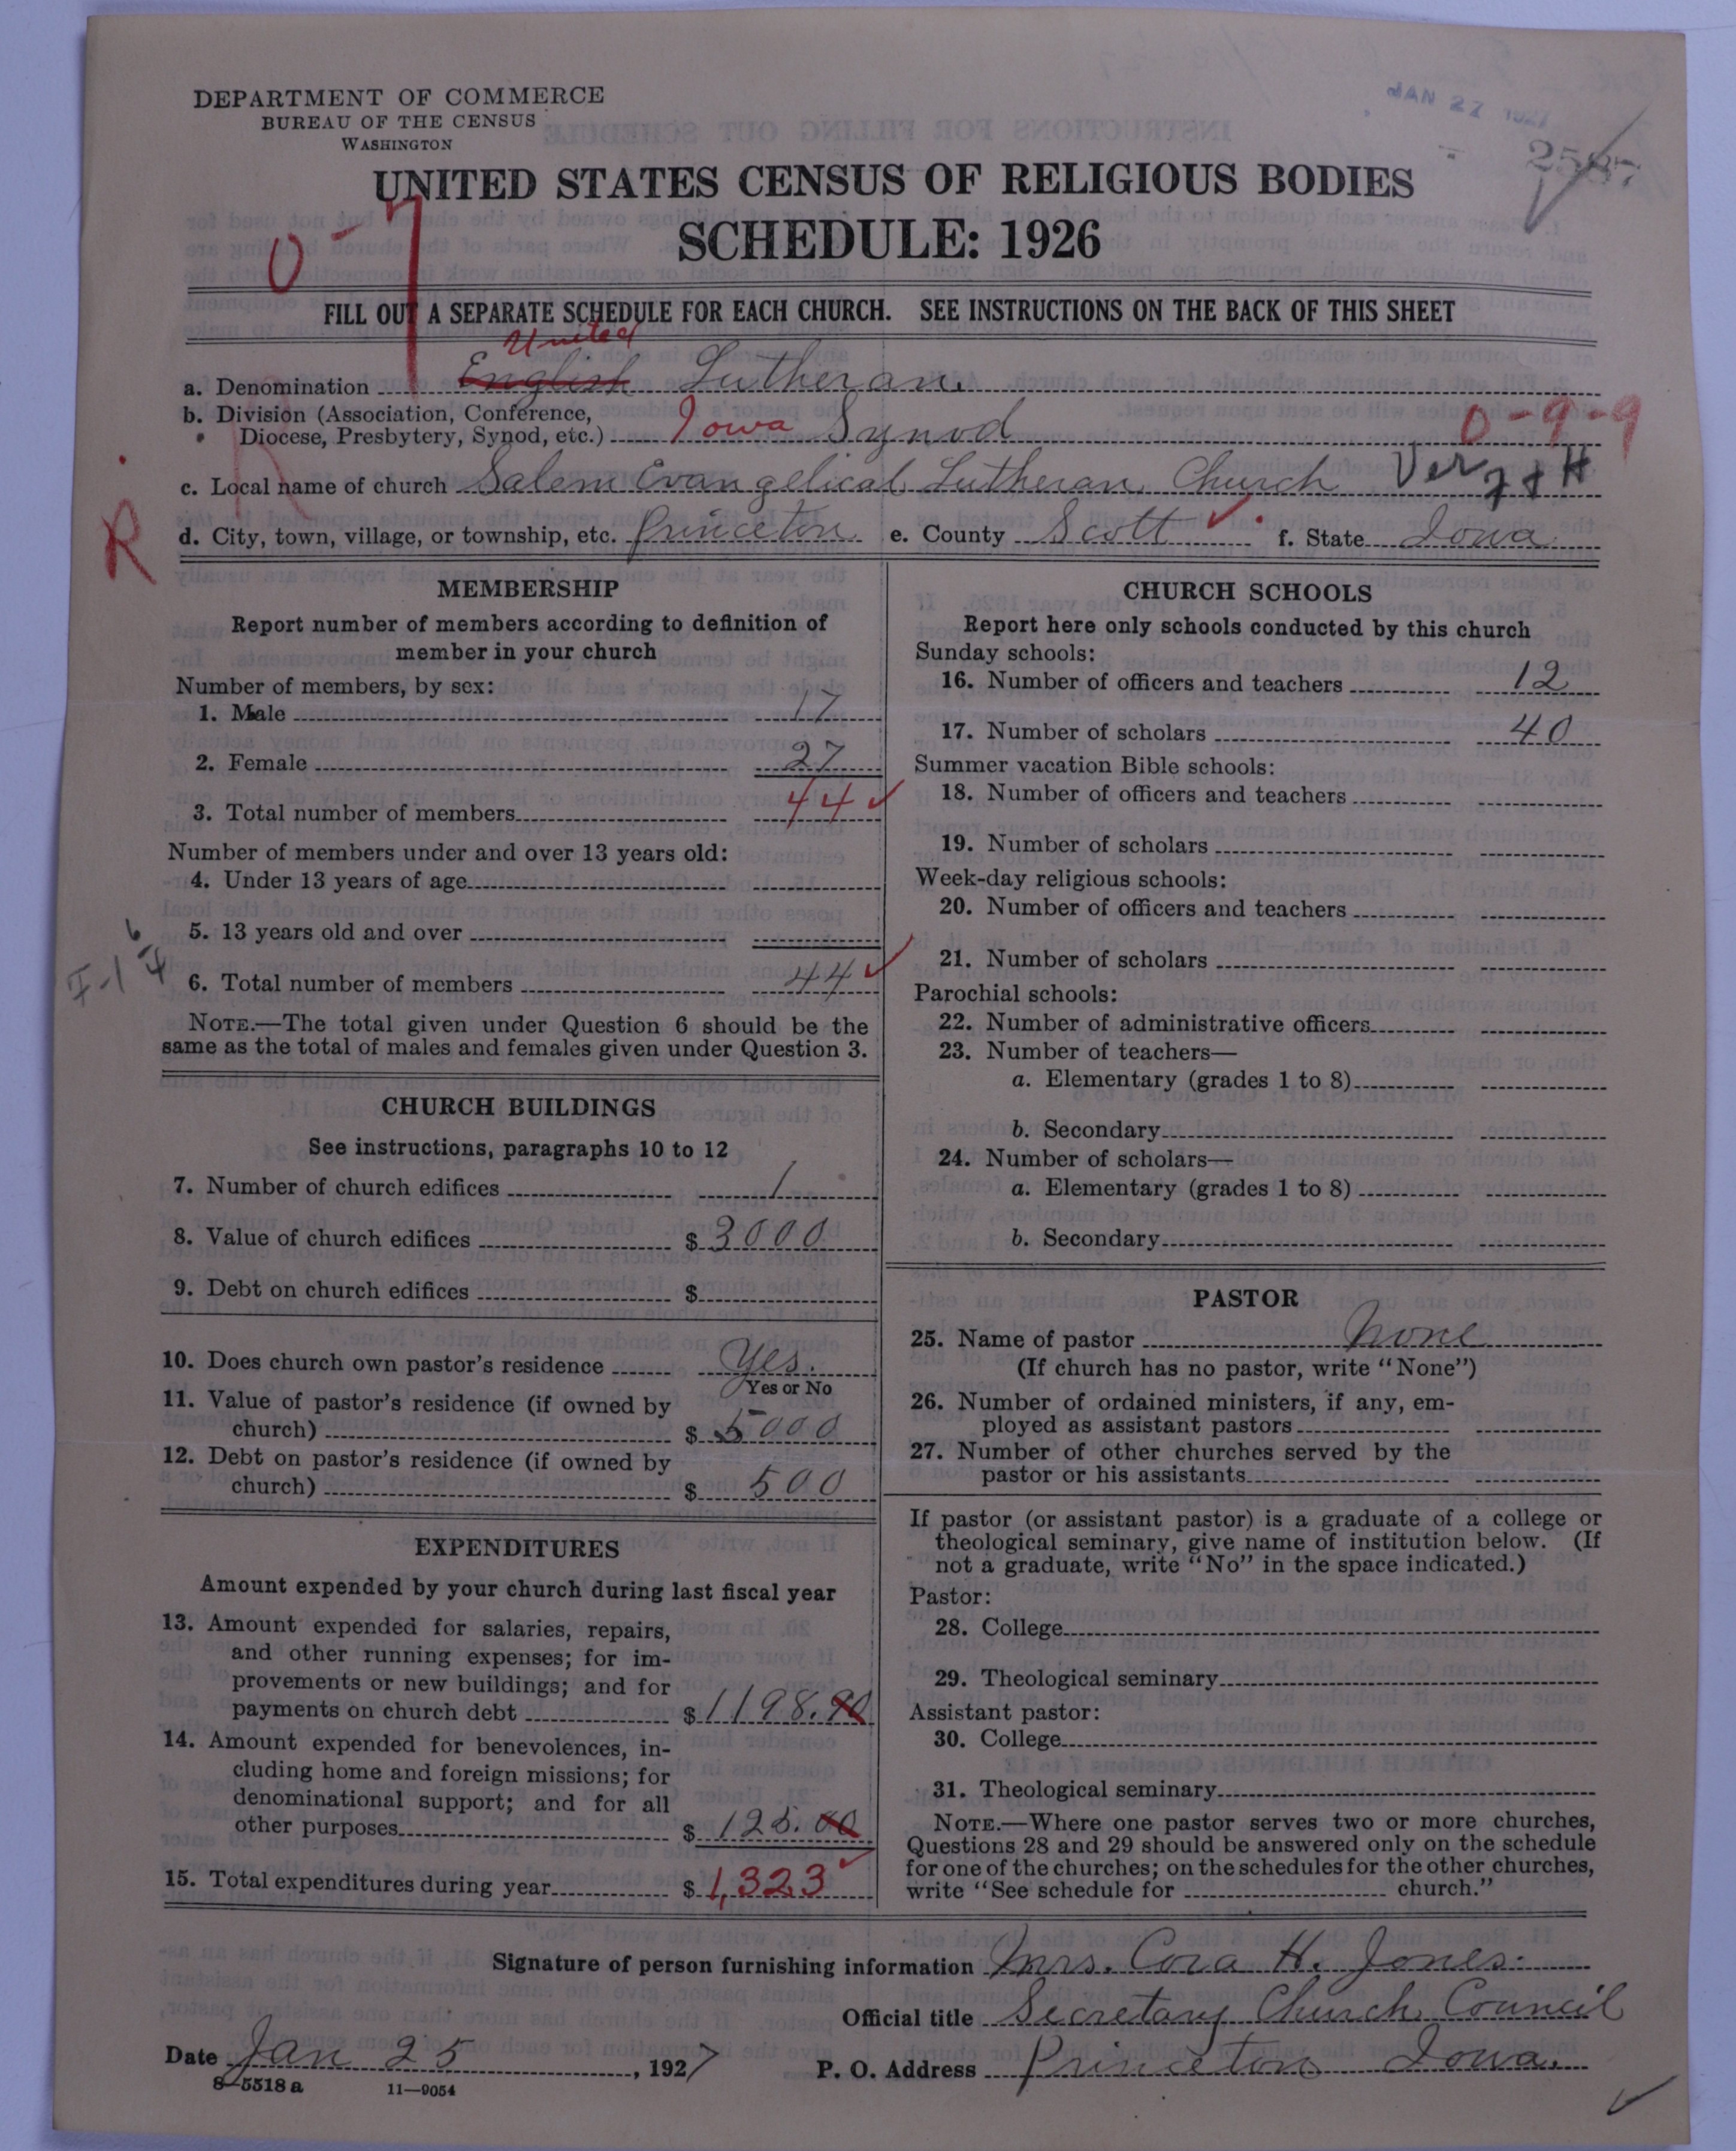 JAN 27 1927
DEPARTMENT OF COMMERCE
BUREAU OF THE CENSUS
WASHINGTON
2587
UNITED STATES CENSUS OF RELIGIOUS BODIES
SCHEDULE: 1926
0-7
FILL OUT A SEPARATE SCHEDULE FOR EACH CHURCH. SEE INSTRUCTIONS ON THE BACK OF THIS SHEET
United
a. Denomination English Lutheran.
b. Division (Association, Conference,
Diocese, Presbytery, Synod, etc.) Iowa Synod 0-9-9
c. Local name of church Salem Evangelical Lutheran Church Ver 7 & H
R
d. City, town, village, or township, etc. Princeton e. County Scott f. State Iowa
MEMBERSHIP
Report number of members according to definition of
member in your church
Number of members, by sex:
1. Male 17
2. Female 27
3. Total number of members 44
Number of members under and over 13 years old:
4. Under 13 years of age
5. 13 years old and over
6. Total number of members 44
NOTE.—The total given under Question 6 should be the
same as the total of males and females given under Question 3.
CHURCH BUILDINGS
See instructions, paragraphs 10 to 12
7. Number of church edifices 1
8. Value of church edifices $ 3000
9. Debt on church edifices $
10. Does church own pastor's residence Yes.
Yes or No
11. Value of pastor's residence (if owned by
church) $ 5000
12. Debt on pastor's residence (if owned by
church) $ 500
EXPENDITURES
Amount expended by your church during last fiscal year
13. Amount expended for salaries, repairs,
and other running expenses; for im-
provements or new buildings; and for
payments on church debt $ 1198.90
14. Amount expended for benevolences, in-
cluding home and foreign missions; for
denominational support; and for all
other purposes $ 125.00
15. Total expenditures during year $ 1,323
CHURCH SCHOOLS
Report here only schools conducted by this church
Sunday schools:
16. Number of officers and teachers 12
17. Number of scholars 40
Summer vacation Bible schools:
18. Number of officers and teachers
19. Number of scholars
Week-day religious schools:
20. Number of officers and teachers
21. Number of scholars
Parochial schools:
22. Number of administrative officers
23. Number of teachers—
a. Elementary (grades 1 to 8)
b. Secondary
24. Number of scholars—
a. Elementary (grades 1 to 8)
b. Secondary
PASTOR
25. Name of pastor None
(If church has no pastor, write "None")
26. Number of ordained ministers, if any, em-
ployed as assistant pastors
27. Number of other churches served by the
pastor or his assistants
If pastor (or assistant pastor) is a graduate of a college or
theological seminary, give name of institution below. (If
not a graduate, write "No" in the space indicated.)
Pastor:
28. College
29. Theological seminary
Assistant pastor:
30. College
31. Theological seminary
NOTE.—Where one pastor serves two or more churches,
Questions 28 and 29 should be answered only on the schedule
for one of the churches; on the schedules for the other churches,
write "See schedule for church."
Signature of person furnishing information Mrs. Cora H. Jones.
Official title Secretary Church Council
Date Jan 25, 1927 P. O. Address Princeton Iowa.
8-5518 a 11—9054